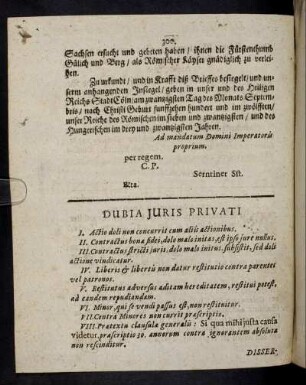 300.
Sachsen ersucht und gebeten haben / ihnen die Fürstenthumb
Gülich und Berg / als Römischer Käyser gnädiglich zu verlei-
hen.
Zu urkundt / und in Krafft diß Brieffes besiegelt / und un-
serm anhangenden Insiegel / geben in unser und des Heiligen
Reichs Stadt Cöln / am zwantzigsten Tag des Monats Septem-
bris / nach Christi Geburt funffzehen hundert und im zwölfften /
unser Reiche des Römischen im sieben und zwantzigsten / und des
Hungerischen im drey und zwantzigsten Jahren.
Ad mandatum Domini Imperatoris
proprium.
per regem.
C. P.
Serntiner Sst.
Rta.
DUBIA JURIS PRIVATI
I. Actio doli non concurrit cum aliis actionibus.
II. Contractus bonæ fidei, dolo malo initus, est ipso jure nullus.
III. Contractus stricti juris, dolo malo initus, subsistit, sed doli
actione vindicatur.
IV. Liberis & libertis non datur restitutio contra parentes
vel patronos.
V. Restitutus adversus aditam hereditatem, restitui potest,
ad eandem repudiandam.
VI. Minor, qui se vendi passus est, non restituitur.
VII. Contra Minores non currit præscriptio.
VIII. Prætextu clausulæ generalis: Si qua mihi justa causa
videtur, præscriptio 30. annorum contra ignorantem absoluta
non rescinditur.
DISSER-